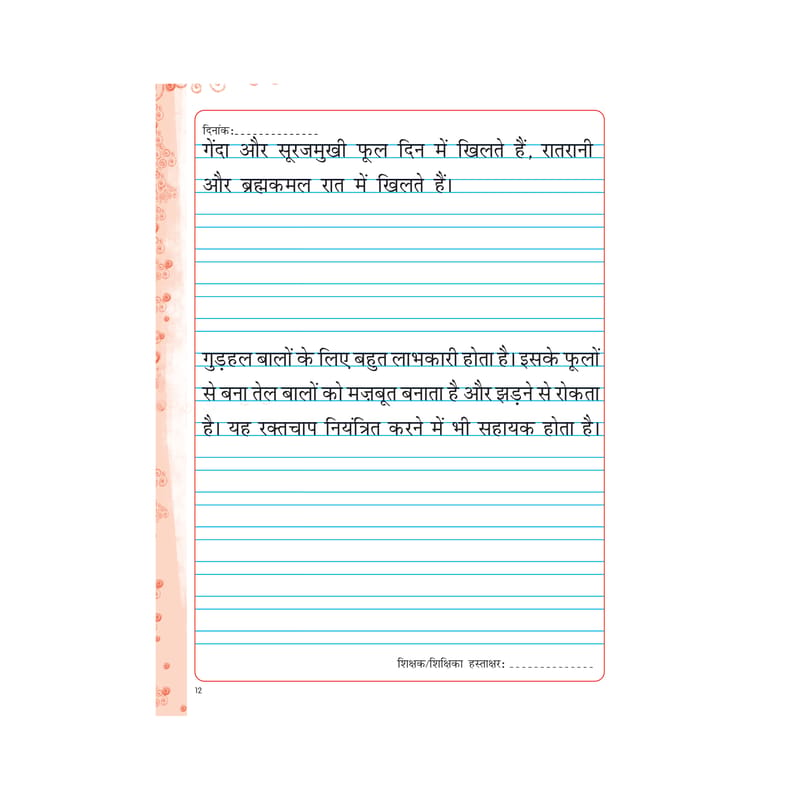 दिनांक:
गेंदा और सूरजमुखी फूल दिन में खिलते हैं, रातरानी
और ब्रह्मकमल रात में खिलते हैं।
गुड़हल बालों के लिए बहुत लाभकारी होता है। इसके फूलों
से बना तेल बालों को मज़बूत बनाता है और झड़ने से रोकता
है। यह रक्तचाप नियंत्रित करने में भी सहायक होता है।
शिक्षक/शिक्षिका हस्ताक्षर:
12